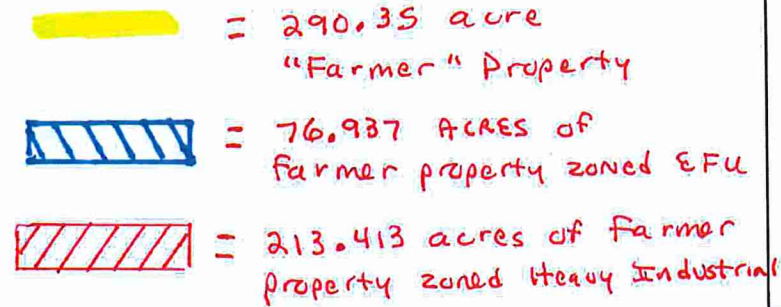 = 290.35 acre
"Farmer" Property
= 76.937 ACRES of
farmer property zoned EFU
= 213.413 acres of farmer
property zoned Heavy Industrial